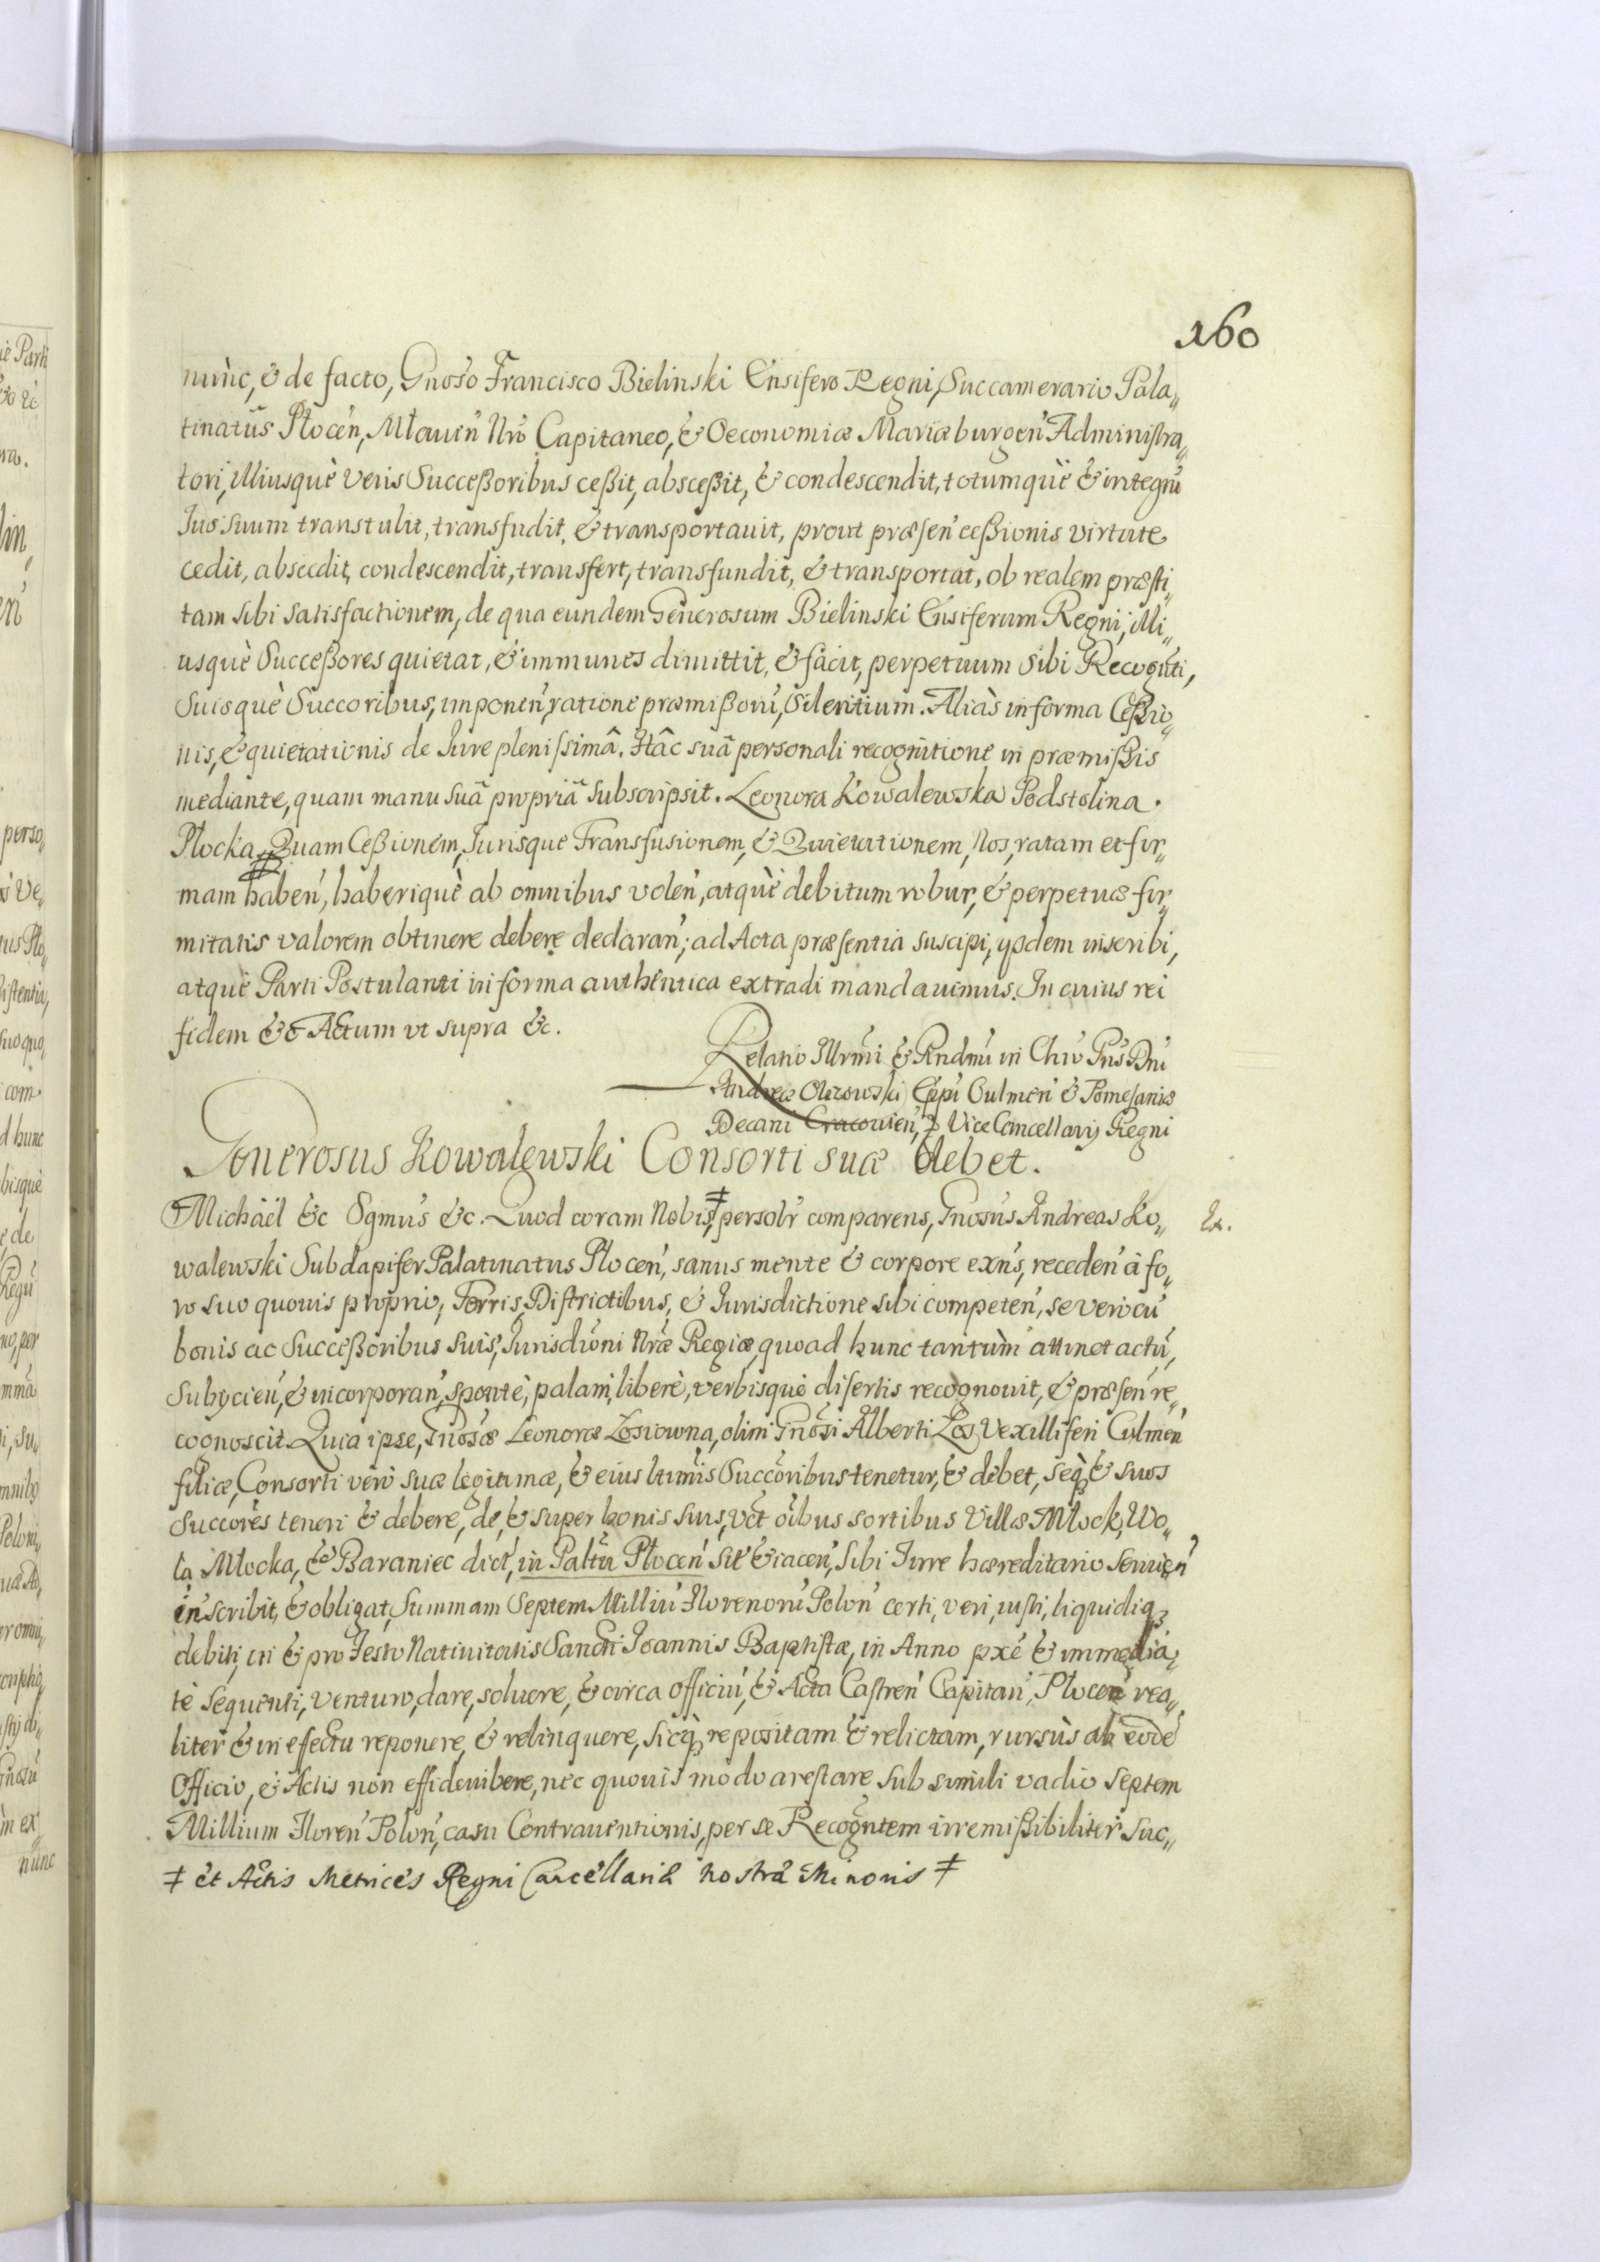 160
nunc, & de facto, Gnoso Francisco Bielinski Ensifero Regni, Succamerario Pala„
tinatus Płocen, Mławen Nro Capitaneo, & Oeconomiæ Mariæburgen Administra„
tori, illiusquè veris Succeßoribus ceßit, absceßit, & condescendit, totumquè & integrũ
Jus suum transtulit, transfudit, & transportauit, prout præsen ceßionis virtute
cedit, abscedit, condescendit, transfert, transfundit, & transportat, ob realem præsti„
tam sibi satisfactionem, de qua eundem Generosum Bielinski Ensiferum Regni, illi„
usquè Succeßores quietat, & immunes dimittit, & facit, perpetuum sibi Recognti,
Suisquè Succoribus, imponen, ratione præmißorũ, silentium. Aliàs in forma Ceßio„
nis, & quietationis de Iure plenissimâ. Hâc suâ personali recognitione in præmißis
mediante, quam manu suâ propriâ subscripsit. Leonora Kowalewska Podstolina
Płocka. Quam Ceßionem, Jurisque Transfusionem, & Quietationem, Nos, ratam et fir„
mam haben, haberiquè ab omnibus volen, atquè debitum robur, & perpetuæ fir„
mitatis valorem obtinere debere declaran; ad Acta præsentia suscipi, ysdem inscribi,
atquè Parti Postulanti in forma authentica extradi mandauimus. In cuius rei
fidem &c Actum vt supra &c.
Relatio Illrmi & Rndmi in Chro Pris Dni
Andreæ Olszowski Eppi Culmen & Pomesaniæ
Decani Cracouien, P Vice Cancellarij Regni
Generosus Kowalewski Consorti suæ debet.
Michaël &c Sgmus &c. Quod coram Nobis, ‡ persolr comparens, Gnosus Andreas Ko„
Ex.
walewski Subdapifer Palatinatus Płocen, sanus mente & corpore exns, receden à fo„
ro suo quouis proprio, Terris, Districtibus, & Iurisdictione sibi competen, se verò cũ
bonis ac Succeßoribus suis, Jurisdioni Nræ Regiæ, quoad hunc tantùm attinet actũ,
subijcien, & incorporan, spontè, palam, liberè, verbisquè disertis recognouit, & præsen re„
cognoscit. Quia ipse, Gnosæ Leonoræ Łosiowna, olim Gnosi Alberti Łoś Vexilliferi Culmen
filiæ, Consorti verò suæ legitimæ, & eius ltimis Succoribus tenetur, & debet, seq & suos
Succores teneri & debere, de, & super bonis suis, vct oibus sortibus Villæ Młock, Wo„
la Młocka, & Baraniec dict, in Paltu Płocen sit & iacen, sibi Iure hæreditario seruien
inscribit, & obligat, Summam Septem Milliũ Florenorũ Polon certi, veri, iusti, liquidiq
debiti, cti & pro Festo Natiuitatis Sancti Ioannis Baptistæ, in Anno pxe & immedia„
tè sequenti, venturo, dare, soluere, & circa officiũ, & Acta Castren Capitan, Płocen rea„
liter & in effectu reponere, & relinquere, sicq repositam & relictam, rursùs ab eode
Officio, & Actis non effidenibere, nec quouis modo arestare sub simili vadio septem
Millium Floren Polon, casu Contrauentionis, per se Recogntem irremißibiliter suc„
‡ et Actis Metrices Regni Cancellariæ nostræ Minoris ‡